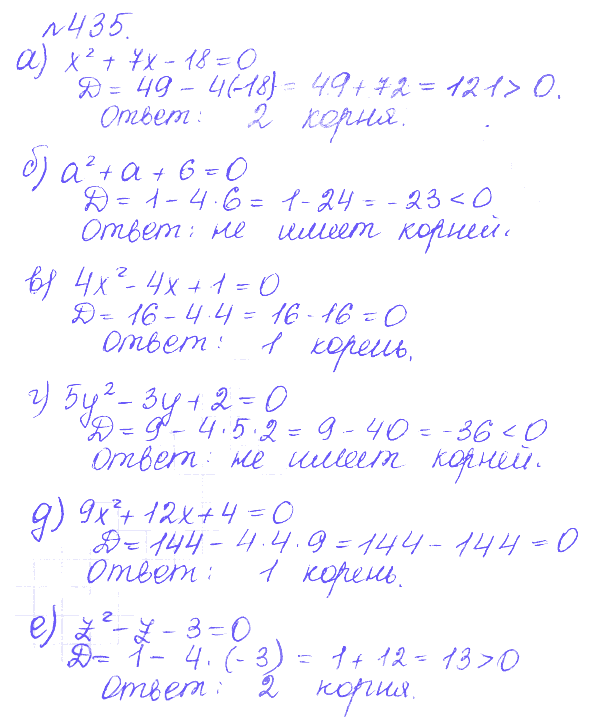 №435.
а) x² + 7x - 18 = 0
D = 49 - 4(-18) = 49 + 72 = 121 > 0.
Ответ: 2 корня.
б) a² + a + 6 = 0
D = 1 - 4·6 = 1 - 24 = -23 < 0
Ответ: не имеет корней.
в) 4x² - 4x + 1 = 0
D = 16 - 4·4 = 16 - 16 = 0
Ответ: 1 корень.
г) 5y² - 3y + 2 = 0
D = 9 - 4·5·2 = 9 - 40 = -36 < 0
Ответ: не имеет корней.
д) 9x² + 12x + 4 = 0
D = 144 - 4·4·9 = 144 - 144 = 0
Ответ: 1 корень.
е) z² - z - 3 = 0
D = 1 - 4·(-3) = 1 + 12 = 13 > 0
Ответ: 2 корня.